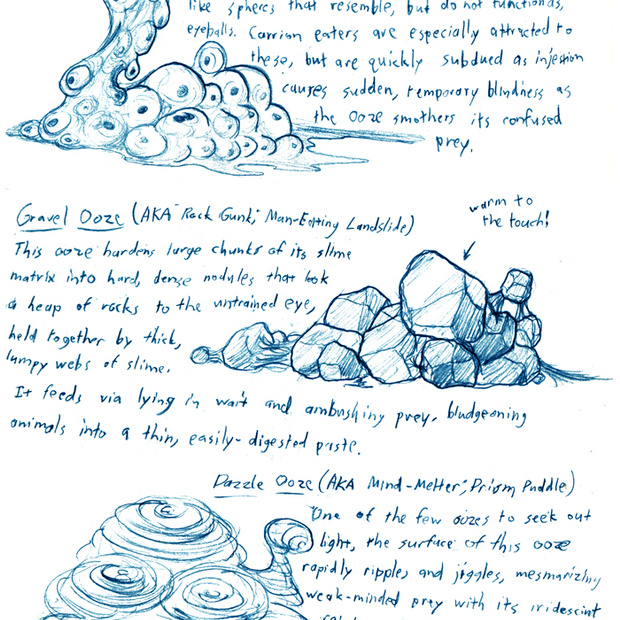 like spheres that resemble, but do not function as,
eyeballs. Carrion eaters are especially attracted to
these, but are quickly subdued as injestion
causes sudden, temporary blindness as
the ooze smothers its confused
prey.
warm to
the touch!
Gravel Ooze (AKA "Rock Gunk," Man-Eating Landslide)
This ooze hardens large chunks of its slime
matrix into hard, dense nodules that look
a heap of rocks to the untrained eye,
held together by thick,
lumpy webs of slime.
It feeds via lying in wait and ambushing prey, bludgeoning
animals into a thin, easily-digested paste.
Dazzle Ooze (AKA Mind-Melter, Prism Puddle)
One of the few oozes to seek out
light, the surface of this ooze
rapidly ripples and jiggles, mesmerizing
weak-minded prey with its iridescent